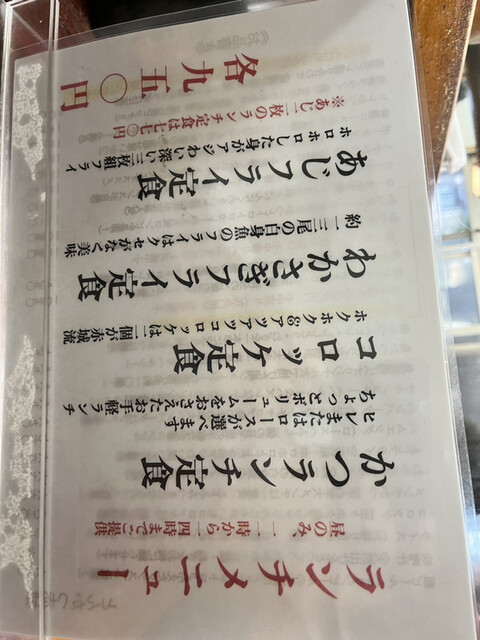 ランチメニュー
昼のみ、一一時から一四時までご提供
かつランチ定食
ヒレまたはロースが選べます
ちょっとボリュームをおさえたお手軽ランチ
コロッケ定食
ホクホク&アツアツコロッケは二個が赤城流
わかさぎフライ定食
約一三尾の白身魚のフライはクセがなく美味
あじフライ定食
ホロホロした身がアジわい深い三枚組フライ
※あじ二枚のランチ定食は七七〇円
各九五〇円